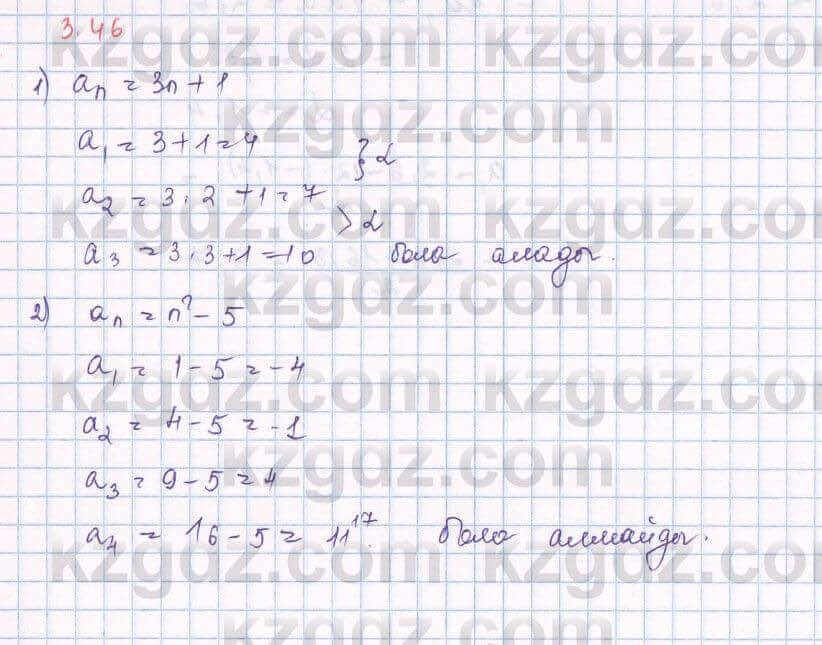 3.46
1) aₙ = 3n + 1
a₁ = 3 + 1 = 4
a₂ = 3 · 2 + 1 = 7
a₃ = 3 · 3 + 1 = 10 бола алады.
2) aₙ = n² - 5
a₁ = 1 - 5 = -4
a₂ = 4 - 5 = -1
a₃ = 9 - 5 = 4
a₄ = 16 - 5 = 11 бола алмайды.
kzgdz.com